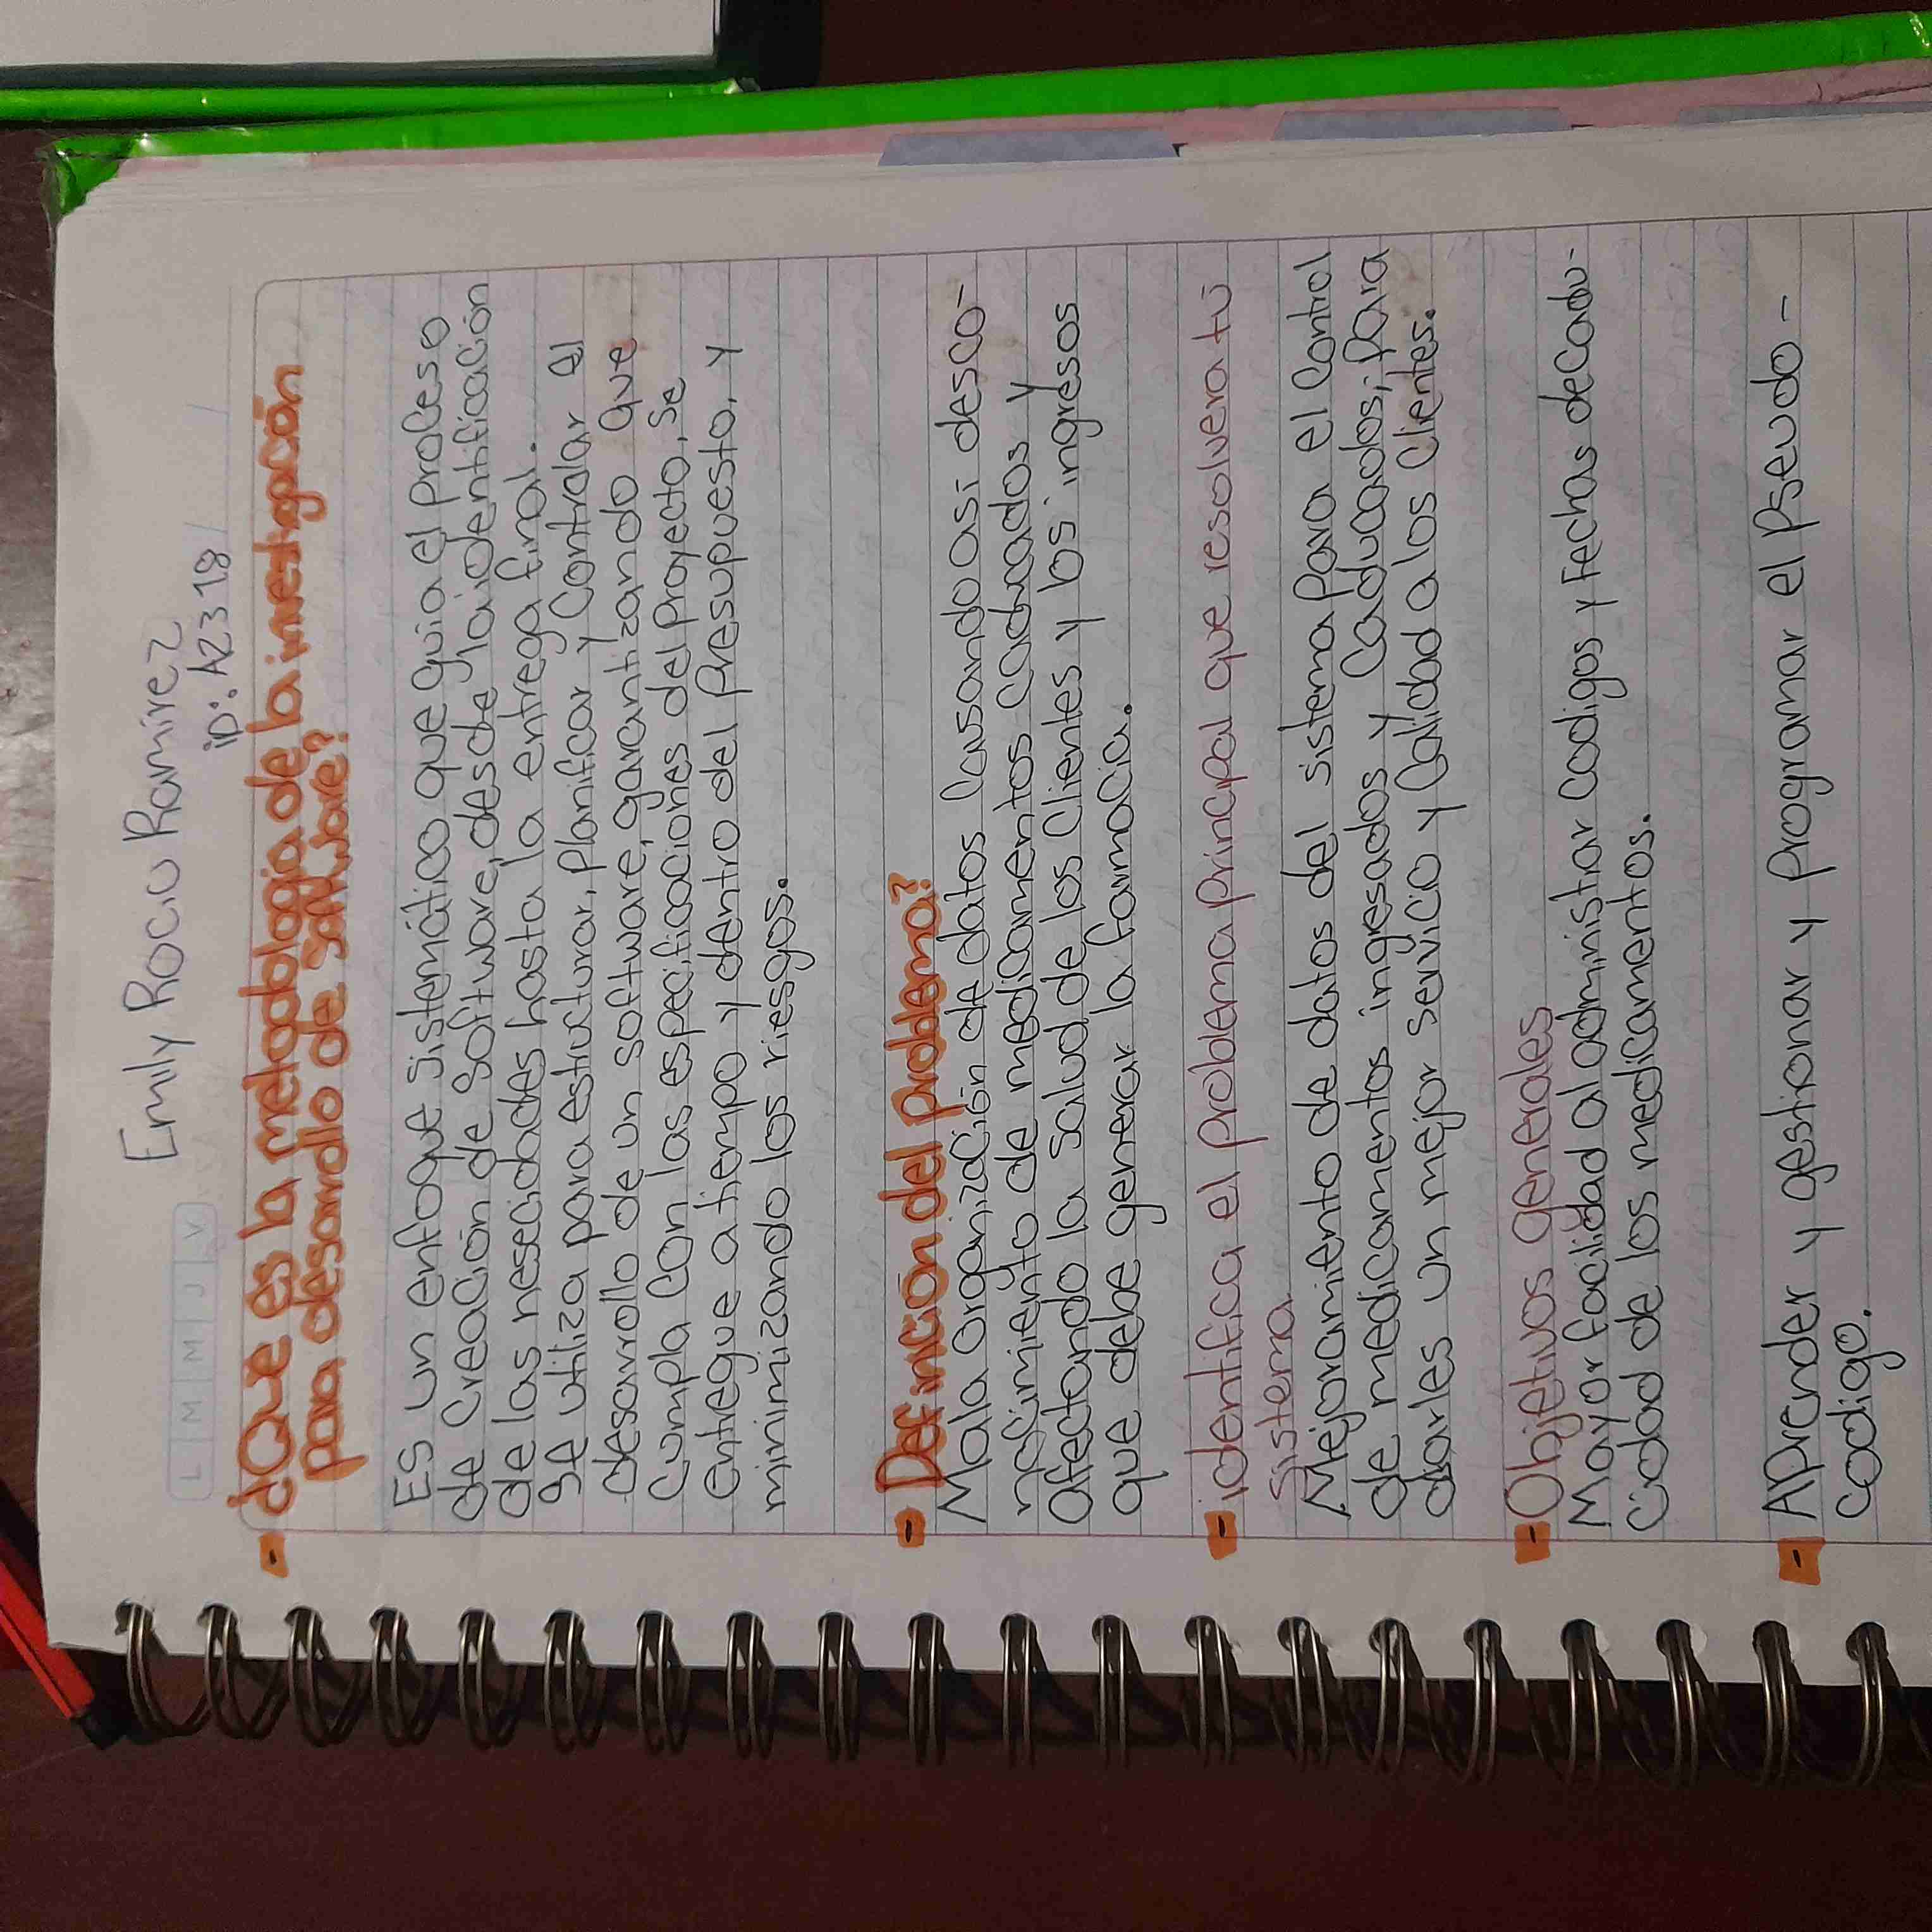 Emily Rocio Ramirez
ip: A2318
L M M J V
- ¿Que es la metodologia de la investigación
para desarrollo de software?
Es un enfoque sistemático que guia el proceso
de creación de software, desde la identificación
de las nesecidades hasta la entrega final.
Se utiliza para estructurar, planificar y controlar el
desarrollo de un software, garantizando que
cumpla con las especificaciones del proyecto, se
entregue a tiempo y dentro del presupuesto, y
minimizando los riesgos.
- Definición del problema?
Mala organización de datos causando asi desco-
nocimiento de medicamentos caducados y
afectando la salud de los clientes y los ingresos
que debe generar la farmacia.
- identifica el problema principal que resolvera tú
sistema
Mejoramiento de datos del sistema para el control
de medicamentos ingresados y caducados; para
darles un mejor servicio y calidad a los clientes.
- Objetivos generales
Mayor facilidad al administrar codigos y fechas de cadu-
cidad de los medicamentos.
- Aprender y gestionar y programar el pseudo-
codigo.